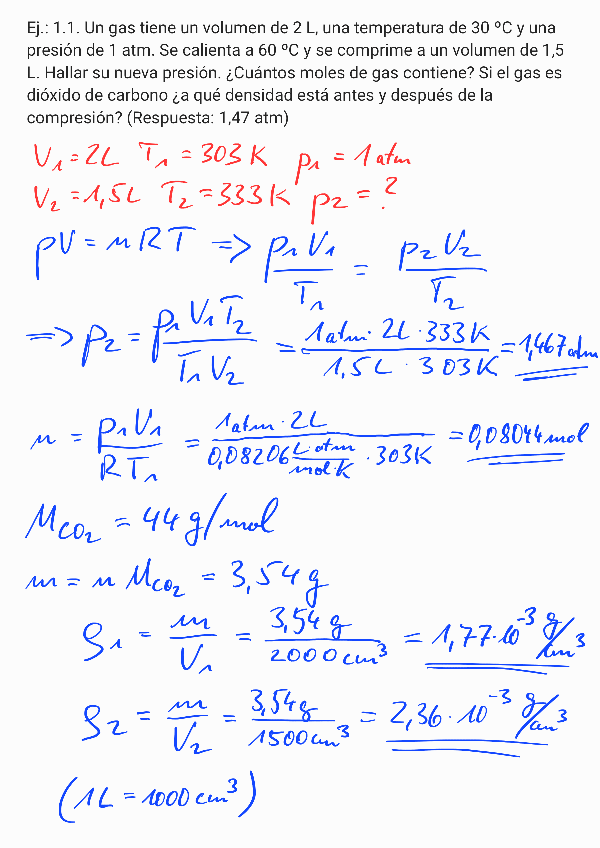 Ej.: 1.1. Un gas tiene un volumen de 2 L, una temperatura de 30 ºC y una
presión de 1 atm. Se calienta a 60 ºC y se comprime a un volumen de 1,5
L. Hallar su nueva presión. ¿Cuántos moles de gas contiene? Si el gas es
dióxido de carbono ¿a qué densidad está antes y después de la
compresión? (Respuesta: 1,47 atm)
V₁ = 2L T₁ = 303 K p₁ = 1 atm
V₂ = 1,5L T₂ = 333 K p₂ = ?
pV = nRT => p₁V₁/T₁ = p₂V₂/T₂
=> p₂ = p₁V₁T₂/T₁V₂ = 1atm · 2L · 333K/1,5L · 303K = 1,467 atm
n = p₁V₁/RT₁ = 1atm · 2L/0,08206 L·atm/mol K · 303K = 0,08044 mol
M_CO₂ = 44 g/mol
m = n M_CO₂ = 3,54 g
ρ₁ = m/V₁ = 3,54 g/2000 cm³ = 1,77·10⁻³ g/cm³
ρ₂ = m/V₂ = 3,54g/1500 cm³ = 2,36·10⁻³ g/cm³
(1L = 1000 cm³)